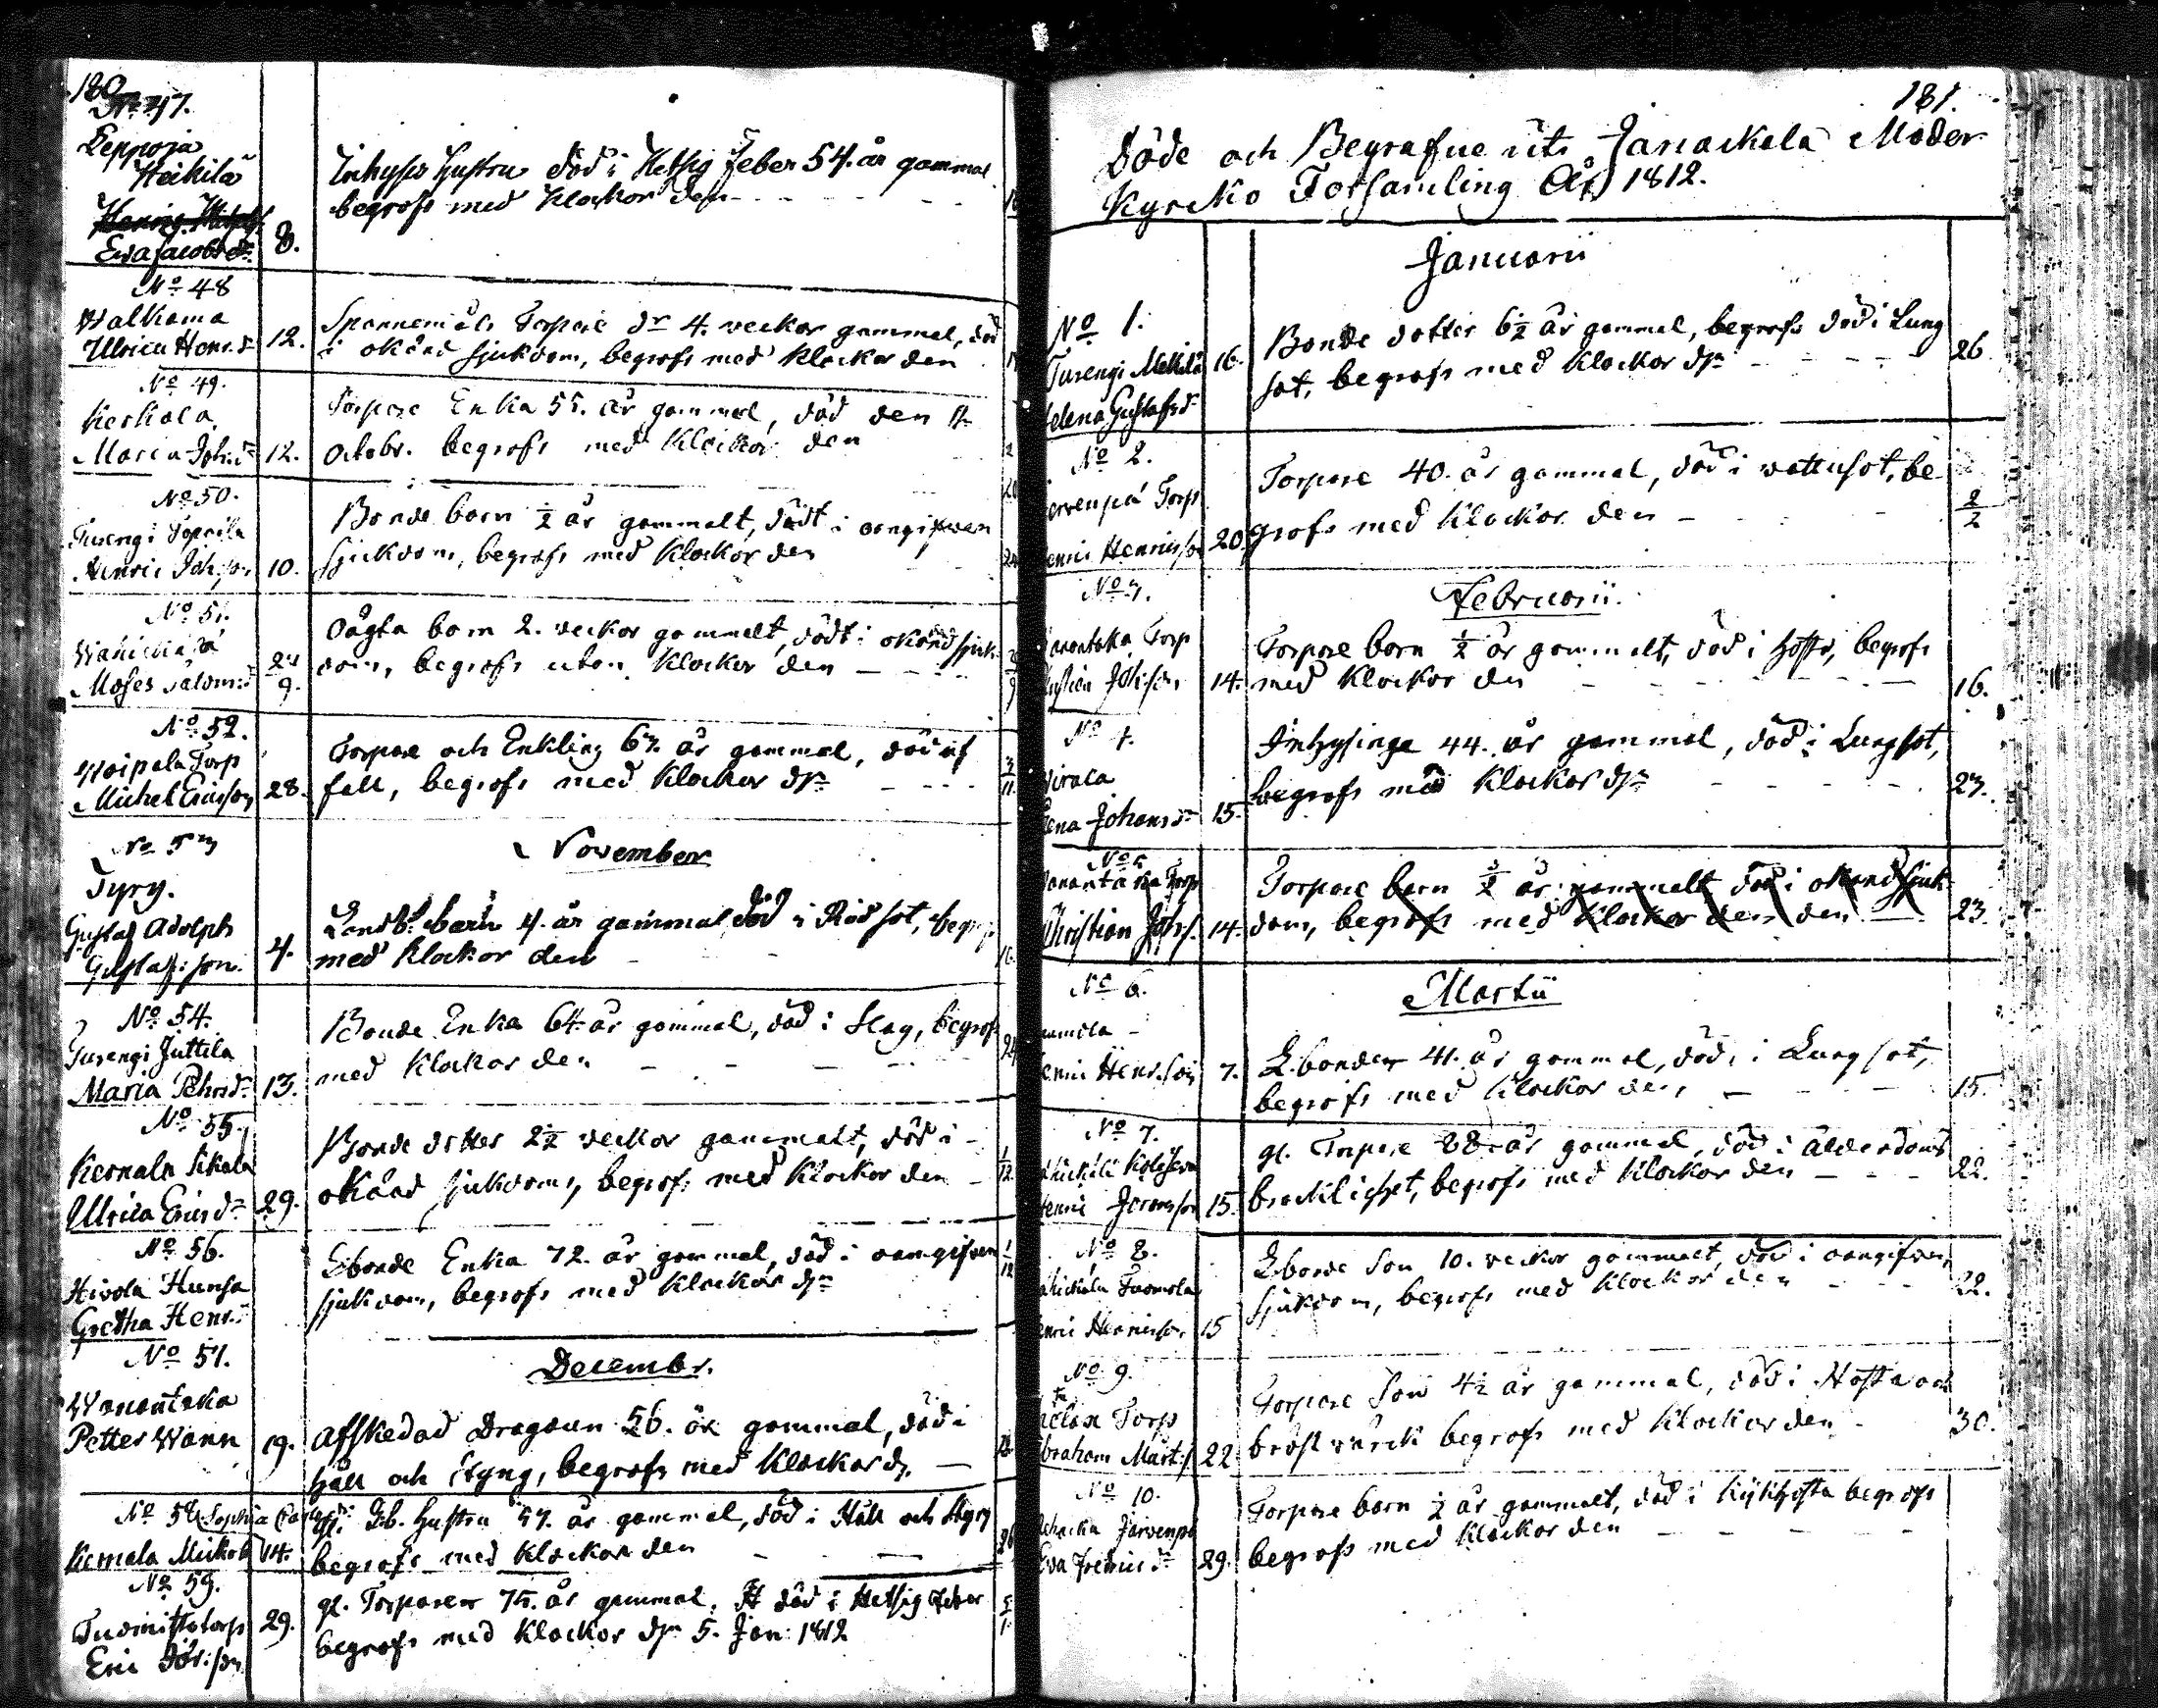 180
No 47.
Leppoja
Heikilä
Eva Jacobsdr
8.
Inhyses hustru död i Hetsig Feber 54. år gammal
begrofs med Klockor den
No 48
Walkama
Ulrica Henr.dr
12.
Spannemåls Torpare dr 4. veckor gammal, död
i okänd sjukdom, begrofs med Klockor den
No 49.
Kerkola
Maria Joh.dr
12.
Torpare Enka 55. år gammal, död den 12
octobr. begrofs med Klockor den
No 50.
Turengi
Henric Joh.son
10.
Bonde barn ½ år gammalt, dödt i oangifven
sjukdom, begrofs med Klockor den
No 51.
Moses Salom:
9.
Oägta barn 2. veckor gammalt, dödt i okänd sjuk-
dom, begrofs utan Klockor den
No 52.
Woipala Torp
Michel Ericsson
28.
Torpare och Enkling 67. år gammal, död af
fall, begrofs med Klockor dn
3/11
November
No 53
Tyry.
Gustaf Adolph
Gustafs:son.
4.
Landb: barn 4. år gammal död i Rödsot, begrofs
med Klockor den
No 54.
Turengi Juttila
Maria Pehrsdr
13.
Bonde Enka 64 år gammal, död i Slag, begrofs
med Klockor den
24
No 55.
Kernala Sikala
Ulrica Ericsdr
29.
Bonde dotter 2½ veckor gammalt, död i
okänd sjukdom, begrofs med Klockor den
1/12
No 56.
Hivola Hunsa
Gretha Henr:
Lbonde Enka 72. år gammal, död i oangifven
sjukdom, begrofs med Klockor dn
1/12
Decembr.
No 57.
Wanantaka
Petter Wänn
19.
Afskedad Dragoun 56. år gammal, död i
håll och styng, begrofs med Klockor d.
No 58 Sophia
Kernala Mickola
14.
gl. Lb. hustru 57. år gammal, död i Håll och styng
begrofs med Klockor den
26
No 59.
Torp
Eric
29.
gl. Torparen 75. år gammal. död i Hetsig Feber
begrofs med Klockor dn 5. Jan: 1812
5/1
181.
Döde och Begrafne uti Janackala Moder
Kyrcko Församling År 1812.
Januarii
No 1.
Turengi Mekilä
Helena Gustafsdr
16.
Bonde dotter 6½ år gammal, begrofs död i Lung
sot, begrofs med Klockor dn
26
No 2.
Järvenpä Torp
Henric Henricsson
20.
Torpare 40. år gammal, död i wattusot, be-
grofs med Klockor den
2/2
Februarii.
No 3.
Wanantaka Torp
Christian Joh:son
14.
Torpare barn ½ år gammalt, död i hosta, begrofs
med Klockor den
16.
No 4.
Wirala
Lena Johansdr
15.
Inhysinge 44. år gammal, död i Lungsot,
begrofs med Klockor dn
23.
No 5
Wanantaka Torp
Christian Johs.
14.
Torpare barn ½ år gammalt död i okänd sjuk-
dom, begrofs med Klockor den den
23
Martii
No 6.
Henric Henr:son
7.
L.bonden 41. år gammal, död i Lungsot,
begrofs med Klockor den
15.
No 7.
Henric
15.
gl. Torpare 88 år gammal, död i ålderdoms
bräcklighet, begrofs med Klockor den
22.
No 8.
Tuomola
Henric Henricsson
15
Lbonde Son 10. veckor gammalt, död i oangifven
sjukdom, begrofs med Klockor den
22.
No 9.
Torp
Abraham Mårt:s
22
Torpare Son 4½ år gammal, död i Hosta och
bröst värck begrofs med Klockor den
30.
No 10.
Järvenpä
Eva
29.
Torpare barn ½ år gammalt, död i Kikhosta begrofs
begrofs med Klockor den